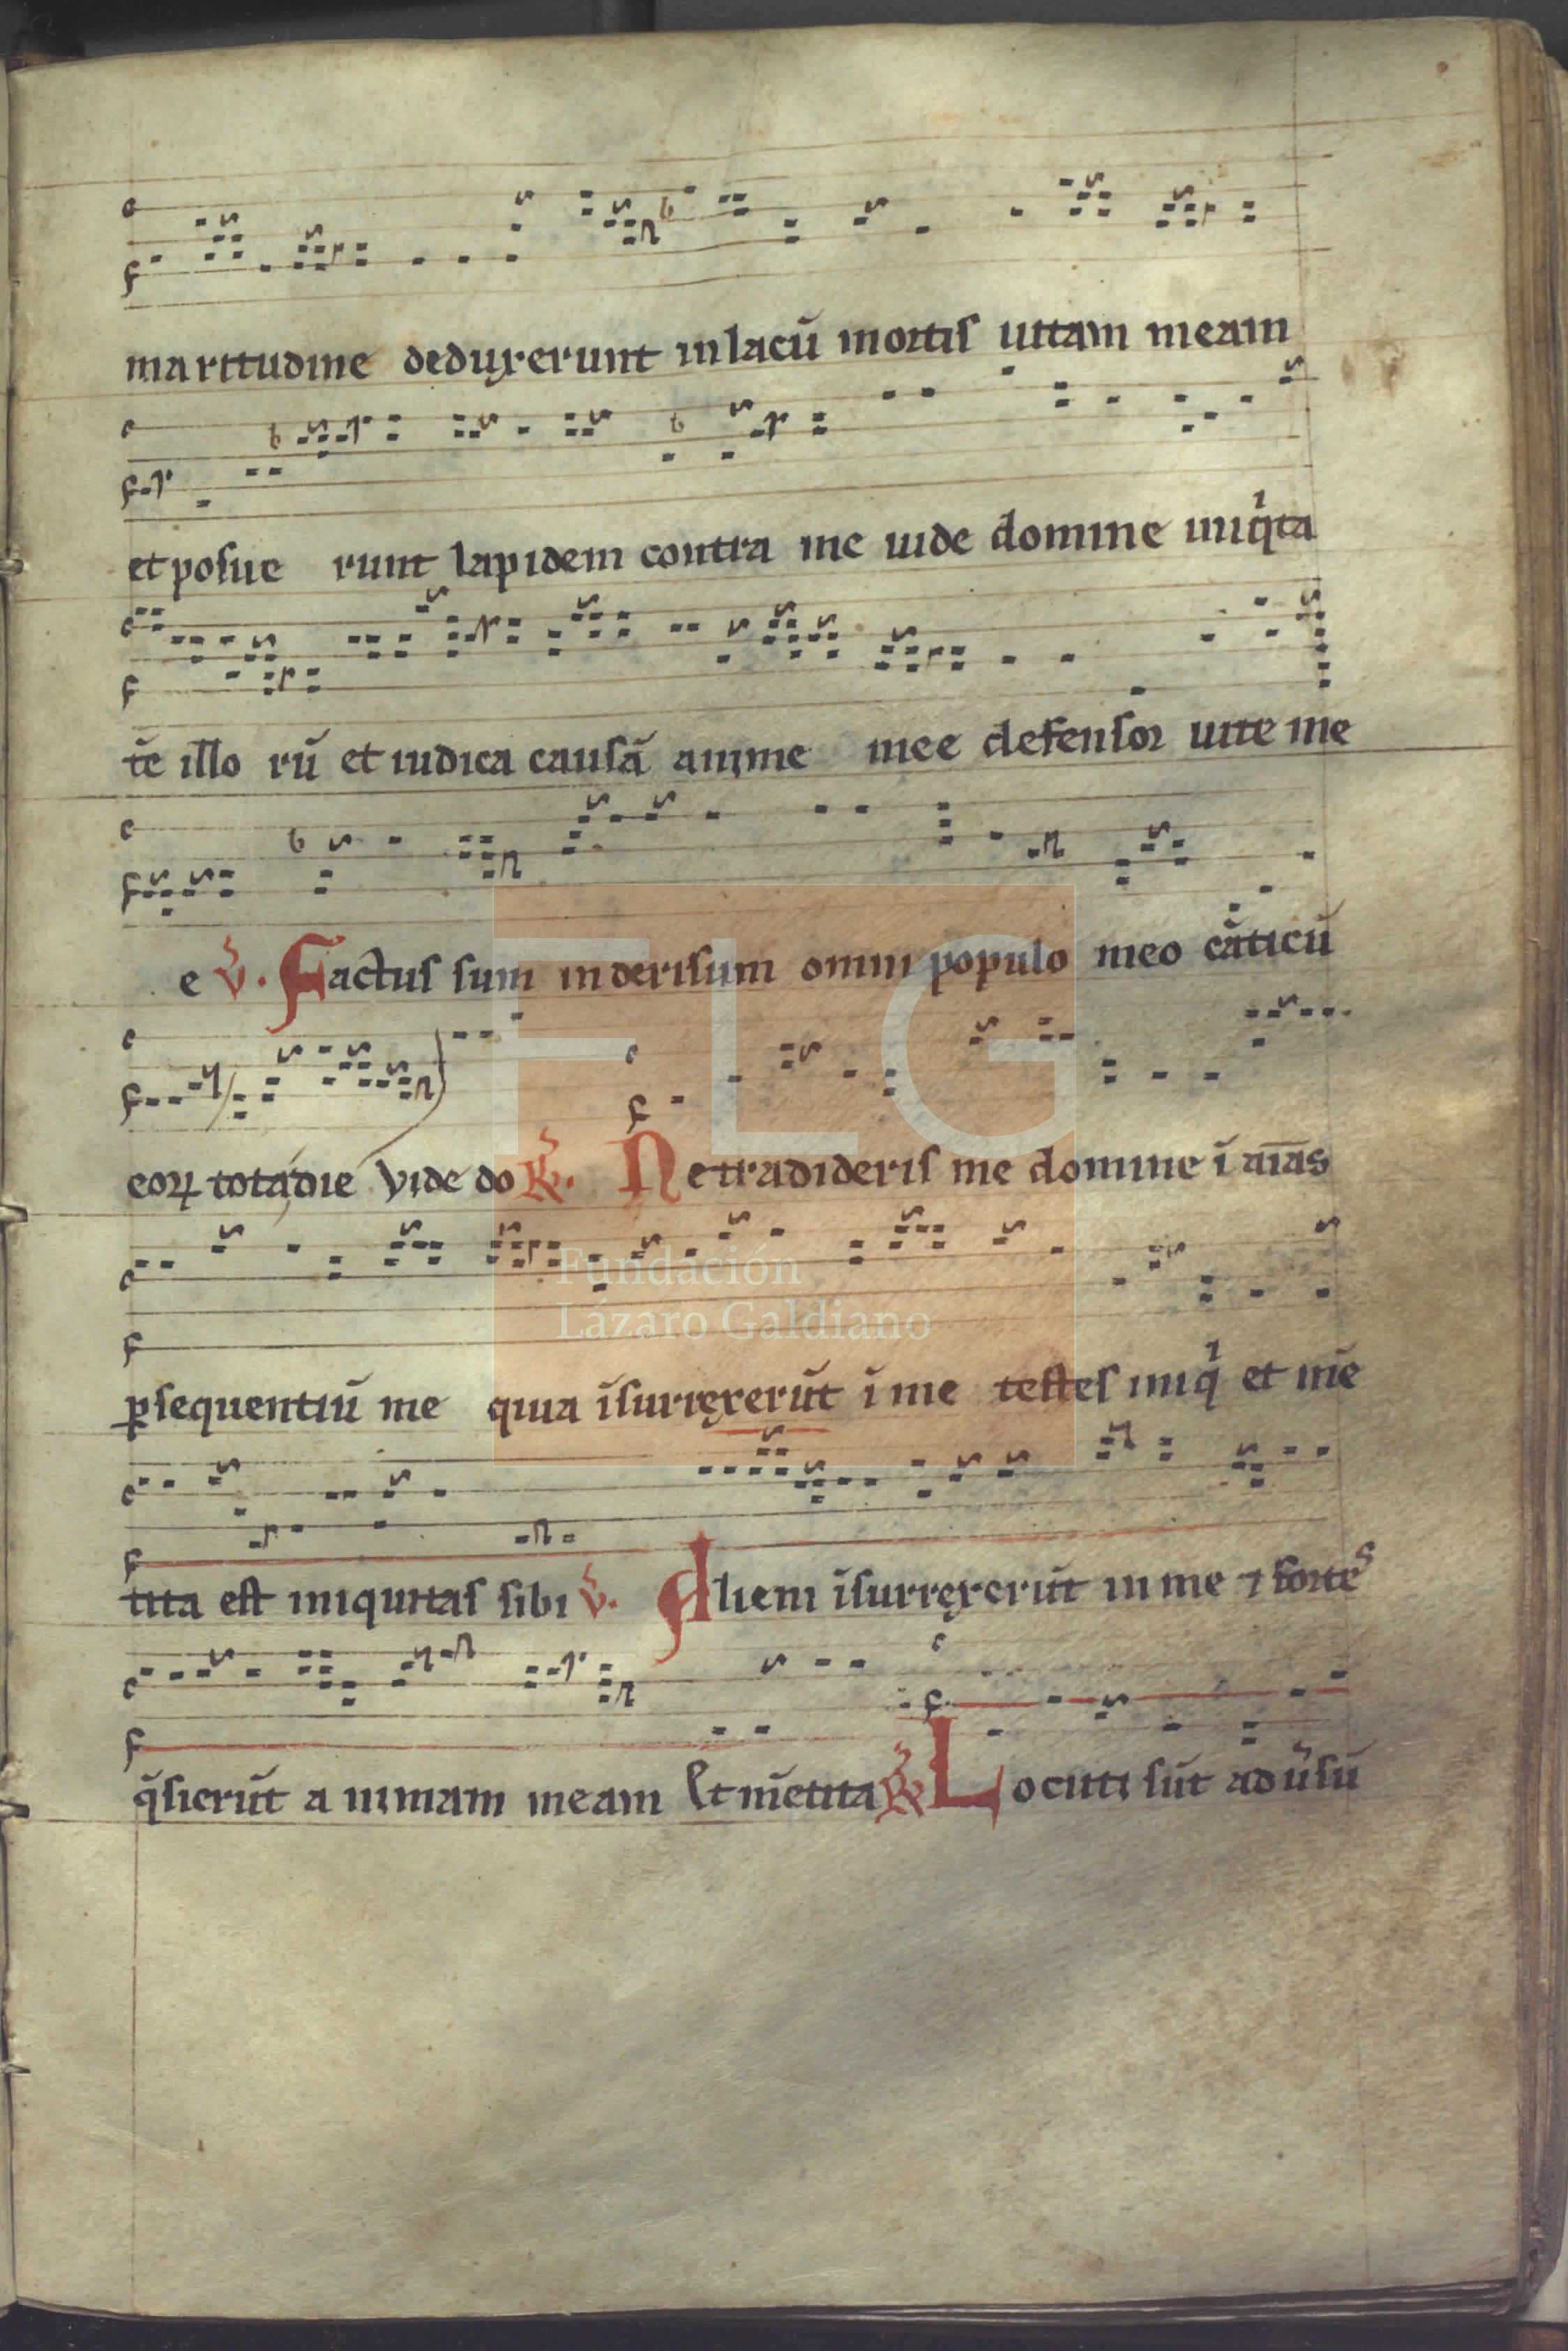 maritudine deduxerunt in lacū mortis uitam meam
et posue runt lapidem contra me uide domine iniqͥta
tē illo rū et iudica causā anime mee defensor uite me
e v̄. Factus sum in derisum omni populo meo cāticū
eoꝝ tota die Vide do R̄. Ne tradideris me domine ī aīas
ꝑsequentiū me quia īsurrexerūt ī me testes iniqͥ et mē
tita est iniquitas sibi v̄. Alieni īsurrexerūt in me ⁊ fortes
q̄sierūt a nimam meam Et mētita R̄ Locuti sūt aduͥsū
FLG
Fundación
Lázaro Galdiano